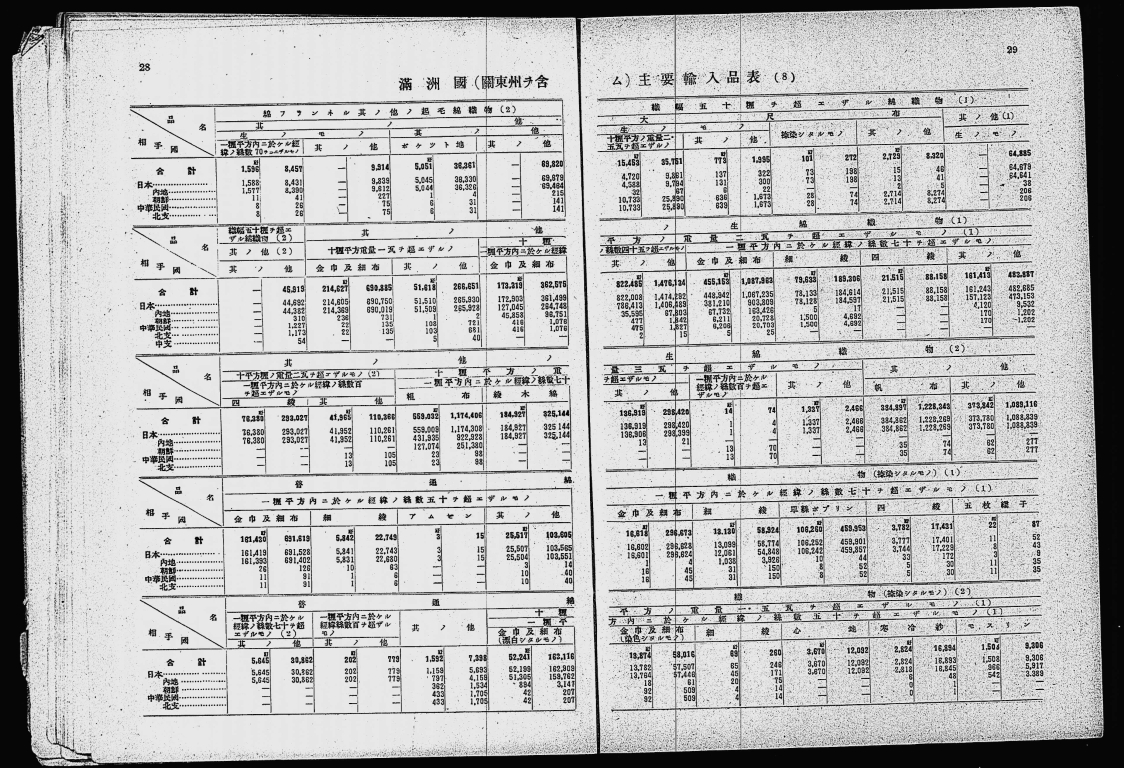 28
滿洲國(關東州ヲ含
綿フランネル其ノ他ノ起毛綿織物(2)
品名
相手國
其ノ他
生ノモノ
其ノ他
一糎平方内ニ於ケル經緯ノ絲數70ヲコエザルモノ
其ノ他
ポケツト地
其ノ他
合計 1,596 8,457 — 9,914 5,051 36,361 — 69,820
日本 1,588 8,431 — 9,839 5,045 36,330 — 69,679
内地 1,577 8,390 — 9,612 5,044 36,326 — 69,464
朝鮮 11 41 — 227 1 4 — 215
中華民國 8 26 — 75 6 31 — 141
北支 8 26 — 75 6 31 — 141
品名
相手國
其ノ他(2)
其ノ他
十糎平方電量一瓦ヲ超エザルノ
金巾及細布
其ノ他
一糎平方内ニ於ケル經緯
金巾及細布
合計 — 46,919 214,627 690,885 51,618 266,651 173,319 362,575
日本 — 44,692 214,605 690,750 51,510 265,930 172,903 361,499
内地 — 44,382 214,369 690,019 51,509 265,928 127,045 264,748
朝鮮 — 310 236 731 1 2 45,858 96,751
中華民國 — 1,227 22 135 108 721 416 1,076
北支 — 1,173 22 135 103 681 416 1,076
中支 — 54 — — 5 40 — —
品名
相手國
其ノ他ノ
十平方糎ノ電量二瓦ヲ超エザルモノ(2)
十糎平方ノ電
一糎平方内ニ於ケル經緯ノ絲數百ヲ超エザルモノ
一糎平方内ニ於ケル經緯ノ絲數七十
四綾
其他
粗布
綾木綿
合計 76,380 293,027 41,965 110,366 559,032 1,174,406 184,927 325,144
日本 76,380 293,027 41,952 110,261 559,009 1,174,308 184,927 325,144
内地 76,380 293,027 41,952 110,261 431,935 922,928 184,927 325,144
朝鮮 — — — — 127,074 251,380 — —
中華民國 — — 13 105 23 98 — —
北支 — — 13 105 23 98 — —
品名
相手國
普通綿
一糎平方内ニ於ケル經緯ノ絲數五十ヲ超エザルモノ
金巾及細布
細綾
アムセン
其ノ他
合計 161,430 691,619 5,842 22,749 3 15 25,517 103,605
日本 161,419 691,528 5,841 22,743 3 15 25,507 103,565
内地 161,393 691,402 5,831 22,680 3 15 25,504 103,551
朝鮮 26 126 10 63 — — 3 14
中華民國 11 91 1 6 — — 10 40
北支 11 91 1 6 — — 10 40
品名
相手國
普通綿
一糎平方内ニ於ケル經緯ノ絲數七十ヲ超エザルモノ(2)
一糎平方内ニ於ケル經緯ノ絲數百ヲ超ザルモノ
其ノ他
十糎
一糎平
金巾及細布(漂白シタルモノ)
其ノ他
其ノ他
合計 5,645 30,862 202 779 1,592 7,398 52,241 163,116
日本 5,645 30,862 202 779 1,159 5,693 52,199 162,909
内地 5,645 30,862 202 779 797 4,159 51,305 159,762
朝鮮 — — — — 362 1,534 894 3,147
中華民國 — — — — 433 1,705 42 207
北支 — — — — 433 1,705 42 207
29
ム)主要輸入品表(8)
織幅五十糎ヲ超エザル綿織物(1)
大尺布
其ノ他(1)
生ノモノ
捺染シタルモノ
其ノ他
生ノモノ
十糎平方ノ電量二・五瓦ヲ超エザルノ
其ノ他
15,453 35,751 773 1,995 101 272 2,729 8,320 — 64,885
4,720 9,861 137 322 73 198 15 46 — 64,679
4,588 9,794 131 300 73 198 13 41 — 64,641
32 67 6 22 — — 2 5 — 38
10,733 25,890 636 1,673 28 74 2,714 8,274 — 206
10,733 25,890 639 1,673 28 74 2,714 8,274 — 206
ノ生綿織物(1)
平方ノ電量二瓦ヲ超エザルモノ(1)
ノ絲數四十五ヲ超エザルモノ
一糎平方内ニ於ケル經緯ノ絲數七十ヲ超エザルモノ
其ノ他
金巾及細布
細綾
四綾
其ノ他
822,485 1,476,134 455,153 1,087,963 79,633 189,306 21,515 88,158 161,413 483,887
822,008 1,474,292 448,942 1,067,235 78,133 184,614 21,515 88,158 161,243 482,685
786,413 1,406,489 381,210 903,809 78,128 184,597 21,515 88,158 157,123 473,153
35,595 67,803 67,732 163,426 5 17 — — 4,120 9,532
477 1,842 6,211 20,728 1,500 4,692 — — 170 1,202
475 1,827 6,206 20,703 1,500 4,692 — — 170 1,202
2 15 5 25 — — — — — —
生綿織物(2)
量三瓦ヲ超エザルモノ
其ノ他
ヲ超エザルモノ
一糎平方内ニ於ケル經緯ノ絲數百ヲ超エザルモノ
其ノ他
帆布
其ノ他
其ノ他
136,919 298,420 14 74 1,337 2,466 384,897 1,228,343 373,842 1,089,116
136,919 298,420 1 4 1,337 2,466 384,862 1,228,269 373,780 1,088,839
136,906 298,399 1 4 1,337 2,466 384,862 1,228,269 373,780 1,088,839
13 21 — — — — — — — —
— — 13 70 — — 35 74 62 277
— — 13 70 — — 35 74 62 277
織物(捺染シタルモノ)(1)
一糎平方内ニ於ケル經緯ノ絲數七十ヲ超エザルモノ(1)
金巾及細布
細綾
平綿ポプリン
四綾
五枚繻子
16,618 296,673 13,130 58,924 106,260 459,953 3,782 17,431 22 87
16,602 296,628 13,099 58,774 106,252 459,901 3,777 17,401 11 52
16,601 296,624 12,061 54,848 106,242 459,857 3,744 17,228 8 43
1 4 1,038 3,926 10 44 33 173 3 9
16 45 31 150 8 52 5 30 11 35
16 45 31 150 8 52 5 30 11 35
織物(捺染シタルモノ)(2)
平方ノ電量一・五瓦ヲ超エザルモノ(1)
方内ニ於ケル經緯ノ絲數五十ヲ超エザルモノ(1)
金巾及細布(染色シタルモノ)
細綾
心地
寒冷紗
モスリン
13,874 58,016 69 260 3,670 12,092 2,824 16,894 1,508 9,306
13,782 57,507 65 246 3,670 12,092 2,824 16,893 1,508 9,306
13,764 57,446 45 171 3,670 12,092 2,818 16,845 966 5,917
18 61 20 75 — — 6 48 542 3,389
92 509 4 14 — — 0 1 — —
92 509 4 14 — — 0 1 — —